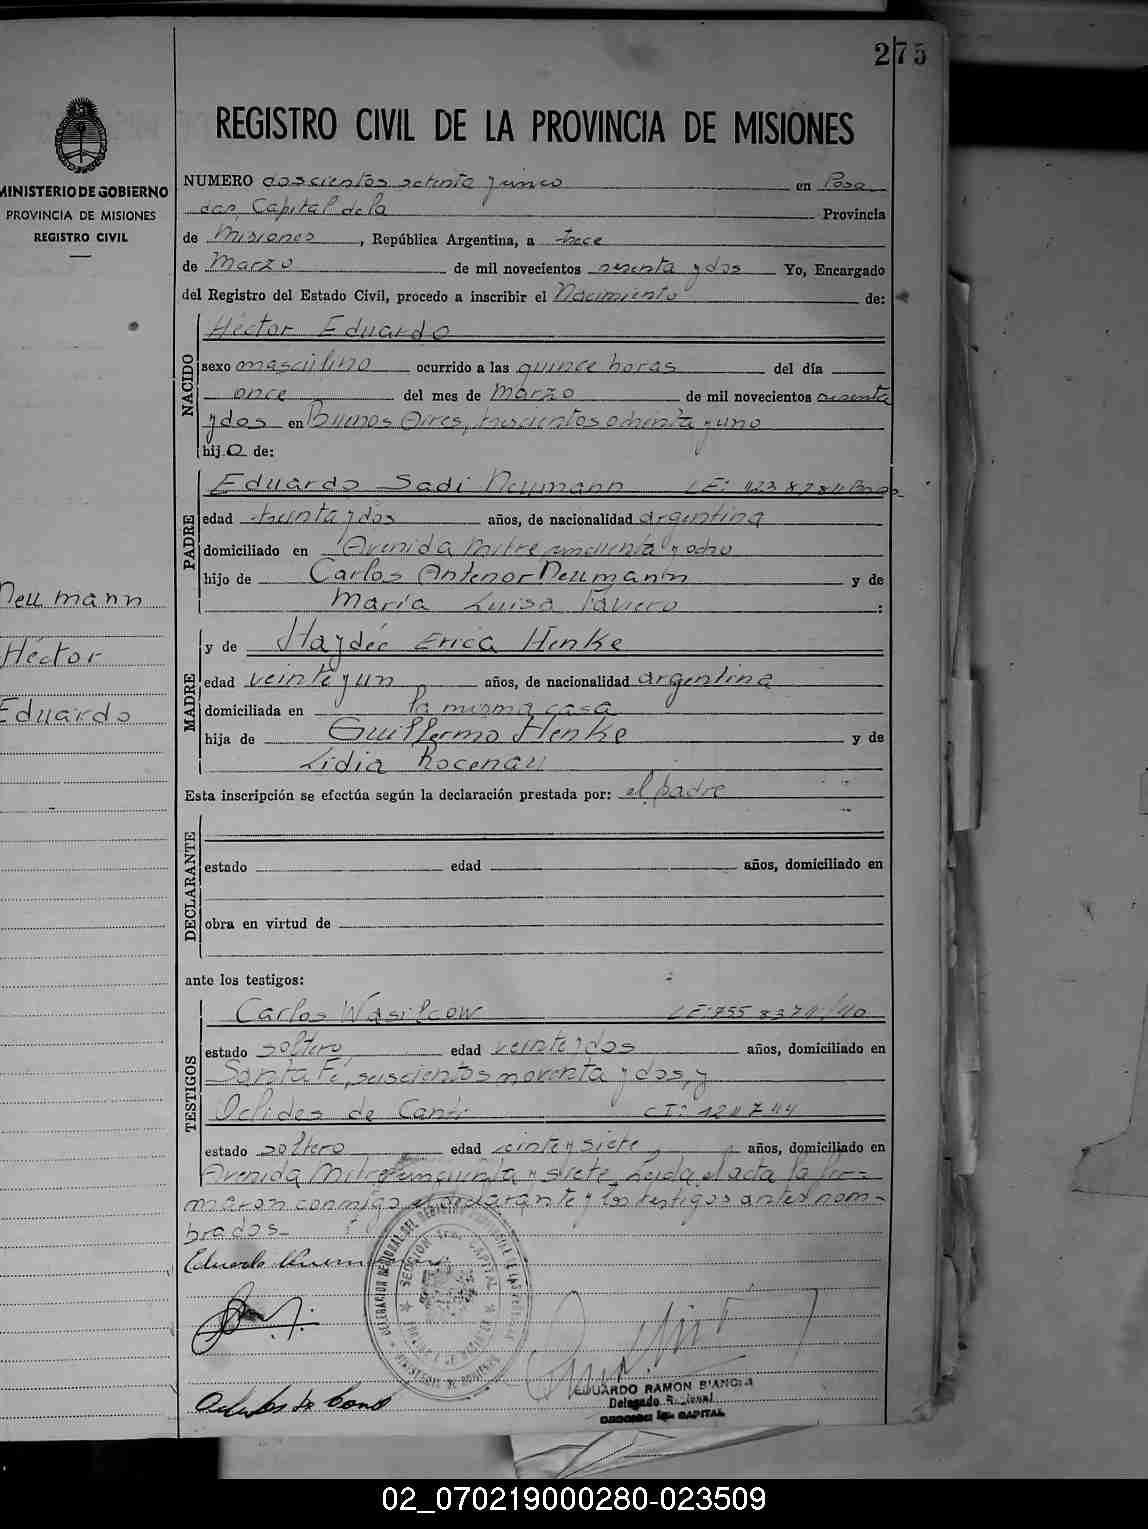 275
REGISTRO CIVIL DE LA PROVINCIA DE MISIONES
MINISTERIO DE GOBIERNO
PROVINCIA DE MISIONES
REGISTRO CIVIL
NUMERO doscientos setenta y cinco en Posa
das, Capital de la Provincia
de Misiones, República Argentina, a trece
de Marzo de mil novecientos sesenta y dos Yo, Encargado
del Registro del Estado Civil, procedo a inscribir el Nacimiento de:
NACIDO
Héctor Eduardo
sexo masculino ocurrido a las quince horas del día
once del mes de Marzo de mil novecientos sesenta
y dos en Buenos Aires, trescientos ochenta y uno
hijo de:
PADRE
Eduardo Sadi Neumann LE:
edad treinta y dos años, de nacionalidad argentina
domiciliado en Avenida Mitre cincuenta y ocho
hijo de Carlos Antenor Neumann y de
María Luisa :
Neumann
Héctor
Eduardo
MADRE
y de Haydée Erica Henke
edad veinte y un años, de nacionalidad argentina
domiciliada en la misma casa
hija de Guillermo Henke y de
Lidia Rocenau
Esta inscripción se efectúa según la declaración prestada por: el padre
DECLARANTE
estado edad años, domiciliado en
obra en virtud de
ante los testigos:
TESTIGOS
Carlos Wasilcow LE:
estado soltero edad veinte y dos años, domiciliado en
Santa Fé, seiscientos noventa y dos, y
Oclides de CI:
estado soltero edad veinte y siete, años, domiciliado en
Avenida Mitre cincuenta y siete. Leida el acta la fir-
maron conmigo el declarante y los testigos antes nom-
brados.-
Eduardo
SECCION CAPITAL
EDUARDO RAMON BIANCHI
Delegado Regional
CAPITAL
02_070219000280-023509